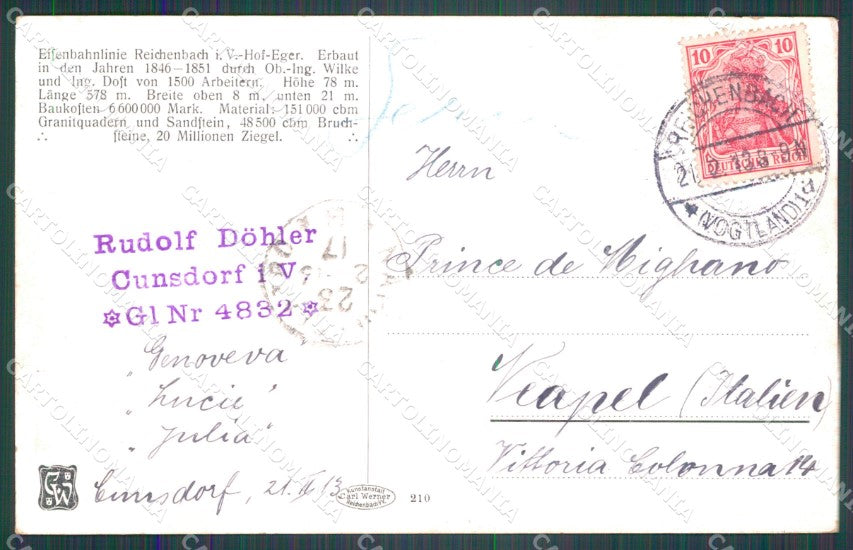 Eisenbahnlinie Reichenbach i. V.-Hof-Eger. Erbaut
in den Jahren 1846—1851 durch Ob.-Ing. Wilke
und Ing. Dost von 1500 Arbeitern. Höhe 78 m.
Länge 578 m. Breite oben 8 m, unten 21 m.
Baukosten 6600000 Mark. Material: 151000 cbm
Granitquadern und Sandstein, 48500 cbm Bruch-
steine, 20 Millionen Ziegel.
Rudolf Döhler
Cunsdorf i V.
Gl Nr 4832
„Genoveva"
„Lucie"
„Julia"
Cunsdorf, 21.II.13
GWS
Kunstanstalt
Carl Werner
Reichenbach i/V.
210
10 10
DEUTSCHES REICH
REICHENBACH
21.2.13.8-9N
(VOGTLAND) 1d
Herrn
Prince de Mignano
Neapel (Italien)
Vittoria Colonna 14
17
2
23
CARTOLINOMANIA